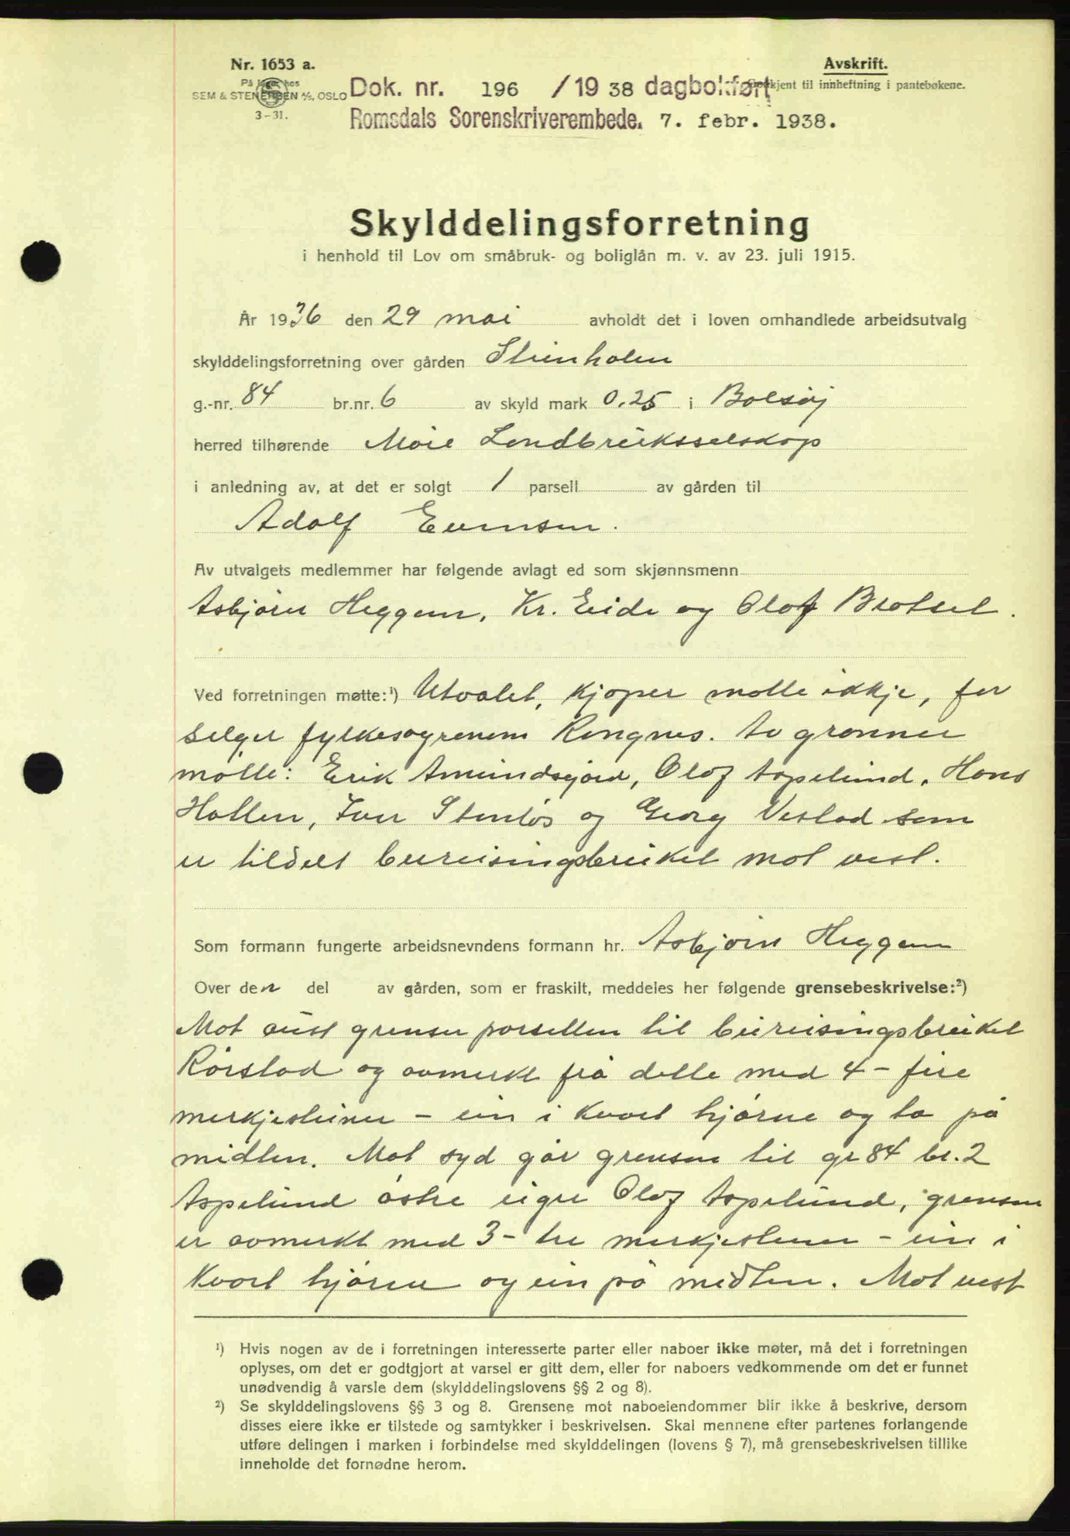 Nr. 1653 a.
På lager hos
SEM & STENERSEN A/S, OSLO
3-31.
Avskrift.
Godkjent til innheftning i pantebøkene.
Dok. nr. 196 /19 38 dagbokført
Romsdals Sorenskriverembede. 7. febr. 1938.
Skylddelingsforretning
i henhold til Lov om småbruk- og boliglån m. v. av 23. juli 1915.
År 1936 den 29 mai avholdt det i loven omhandlede arbeidsutvalg
skylddelingsforretning over gården Steinholen
g.-nr. 84 br.nr. 6 av skyld mark 0.25 i Bolsøy
herred tilhørende Møre Landbruksselskap
i anledning av, at det er solgt 1 parsell av gården til
Adolf
Av utvalgets medlemmer har følgende avlagt ed som skjønnsmenn
Asbjørn Heggem, Kr. Eide og Olof
Ved forretningen møtte:¹) Utvalet, kjøper møtte ikkje, for
selger fylkesagronom Rongnes. Av grannar
møtte: Erik Amundsgård, Olof Aspelund, Hans
Hatlen, Iver Stenløs og Georg Vestad som
er tildelt bureisingsbruket mot vest.
Som formann fungerte arbeidsnevndens formann hr. Asbjørn Heggem
Over den del av gården, som er fraskilt, meddeles her følgende grensebeskrivelse:²)
Mot aust grenser parsellen til bureisingsbruket
Rørstad og avmerkt frå dette med 4 - fire
merkjesteiner - ein i kvart hjørne og to på
midten. Mot syd går grensen til gr 84 br. 2
Aspelund østre eigre Olof Aspelund, grensen
er avmerkt med 3 - tre merkjesteiner - ein i
kvart hjørne og ein på midten. Mot vest
¹) Hvis nogen av de i forretningen interesserte parter eller naboer ikke møter, må det i forretningen
oplyses, om det er godtgjort at varsel er gitt dem, eller for naboers vedkommende om det er funnet
unødvendig å varsle dem (skylddelingslovens §§ 2 og 8).
²) Se skylddelingslovens §§ 3 og 8. Grensene mot naboeiendommer blir ikke å beskrive, dersom
disses eiere ikke er tilstede og samtykker i beskrivelsen. Skal mennene efter partenes forlangende
utføre delingen i marken i forbindelse med skylddelingen (lovens § 7), må grensebeskrivelsen tillike
inneholde det fornødne herom.